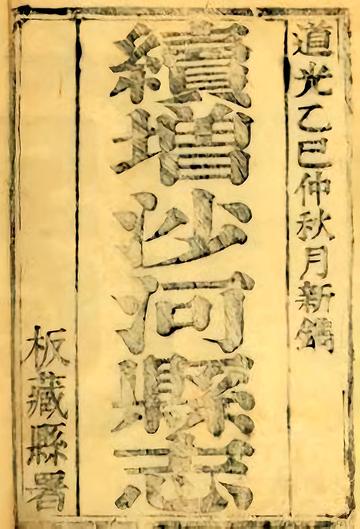 道光乙巳仲秋月新鐫
續增沙河縣志
板藏縣署